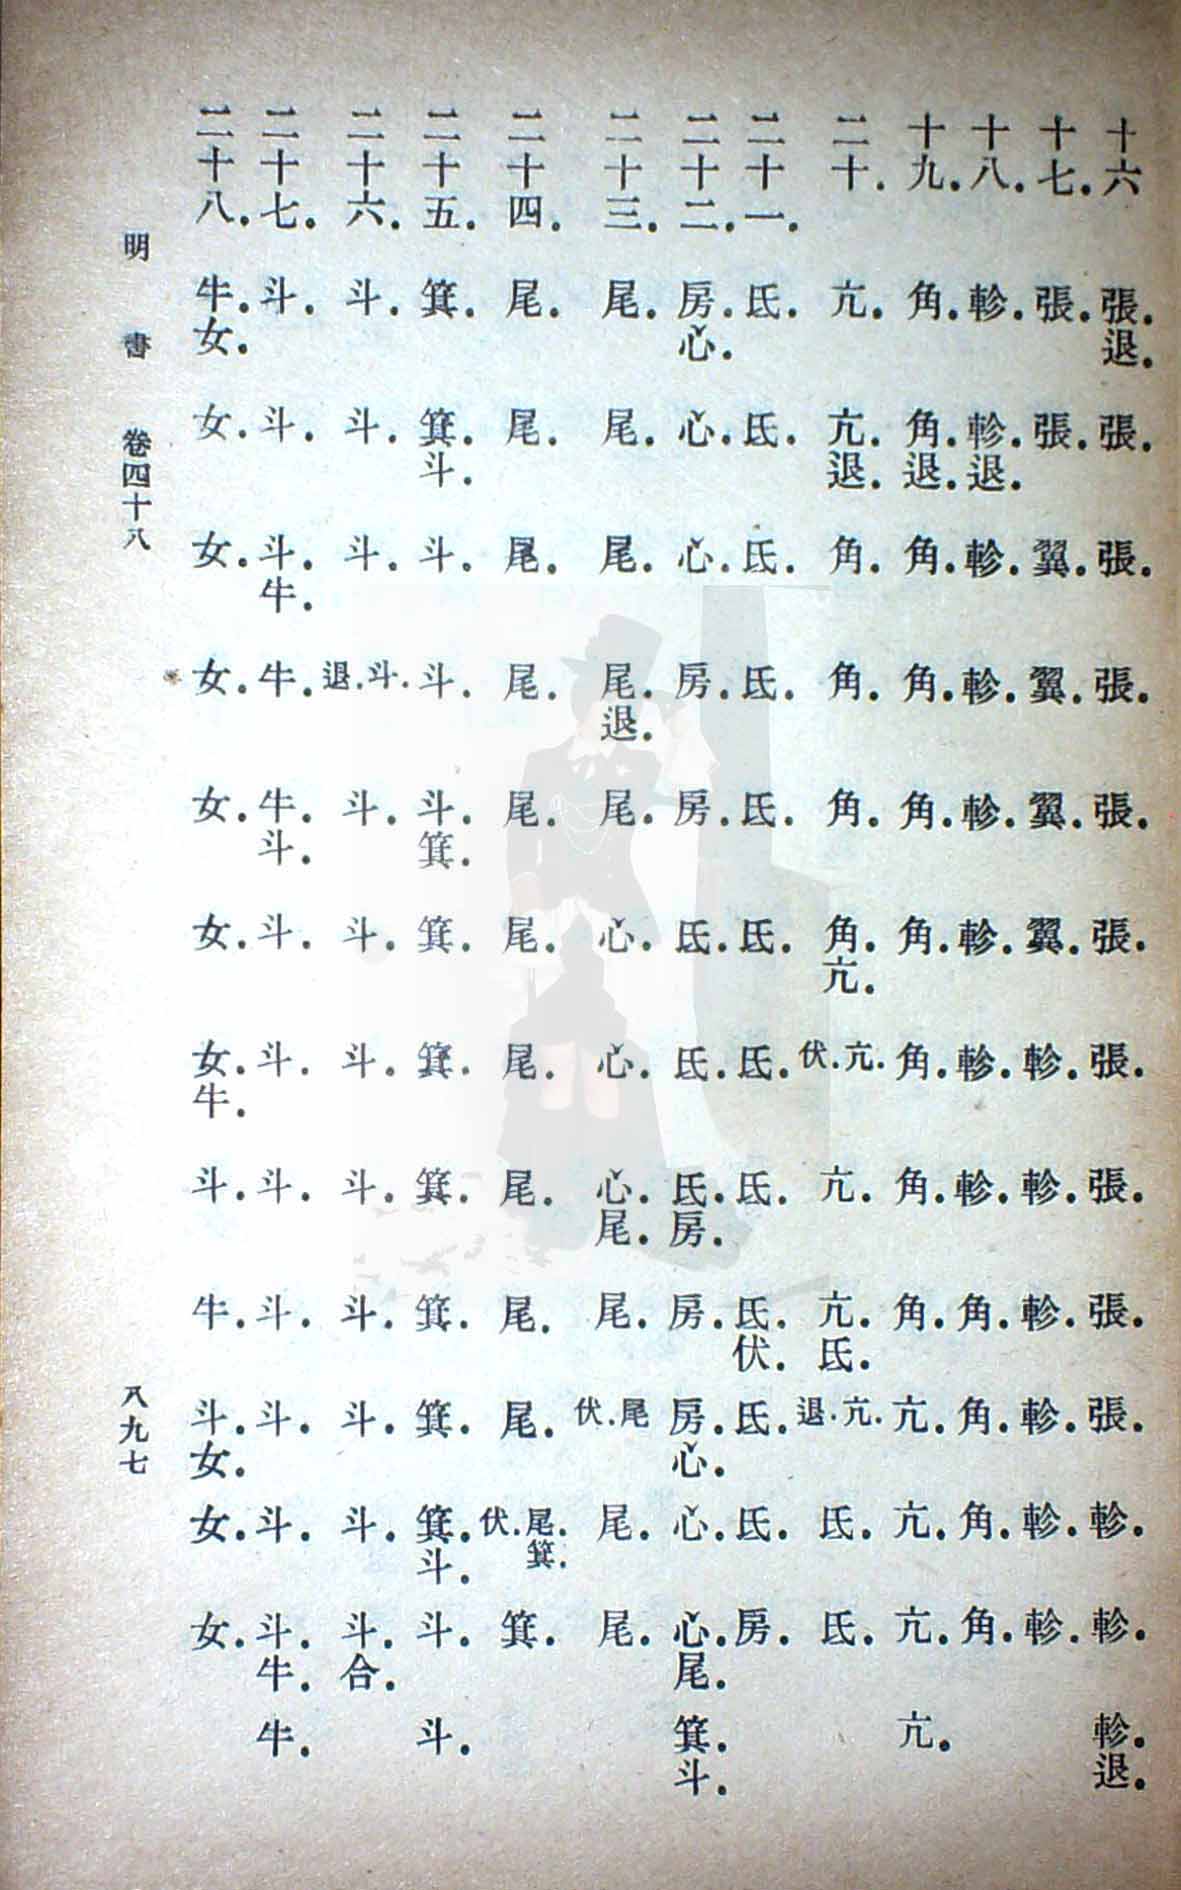 十六 張.退. 張. 張. 張. 張. 張. 張. 張. 張. 張. 軫. 軫. 軫.退.
十七. 張. 張. 翼. 翼. 翼. 翼. 軫. 軫. 軫. 軫. 軫. 軫.
十八. 軫. 軫.退. 軫. 軫. 軫. 軫. 軫. 軫. 角. 角. 角. 角.
十九. 角. 角.退. 角. 角. 角. 角. 角. 角. 角. 亢. 亢. 亢. 亢.
二十. 亢. 亢.退. 角. 角. 角. 角.亢. 亢.伏. 亢. 亢.氐. 亢.退. 氐. 氐.
二十一. 氐. 氐. 氐. 氐. 氐. 氐. 氐. 氐. 氐.伏. 氐. 氐. 房.
二十二. 房.心. 心. 心. 房. 房. 氐. 氐. 氐.房. 房. 房.心. 心. 心.尾. 箕.斗.
二十三. 尾. 尾. 尾. 尾.退. 尾. 心. 心. 心.尾. 尾. 尾伏. 尾. 尾.
二十四. 尾. 尾. 尾. 尾. 尾. 尾. 尾. 尾. 尾. 尾. 尾.箕.伏. 箕.
二十五. 箕. 箕.斗. 斗. 斗. 斗.箕. 箕. 箕. 箕. 箕. 箕. 箕.斗. 斗. 斗.
二十六. 斗. 斗. 斗. 斗.退. 斗. 斗. 斗. 斗. 斗. 斗. 斗. 斗.合.
二十七. 斗. 斗. 斗.牛. 牛. 牛.斗. 斗. 斗. 斗. 斗. 斗. 斗. 斗.牛. 牛.
二十八. 牛.女. 女. 女. 女. 女. 女. 女.牛. 斗. 牛. 斗.女. 女. 女.
明書 卷四十八 八九七